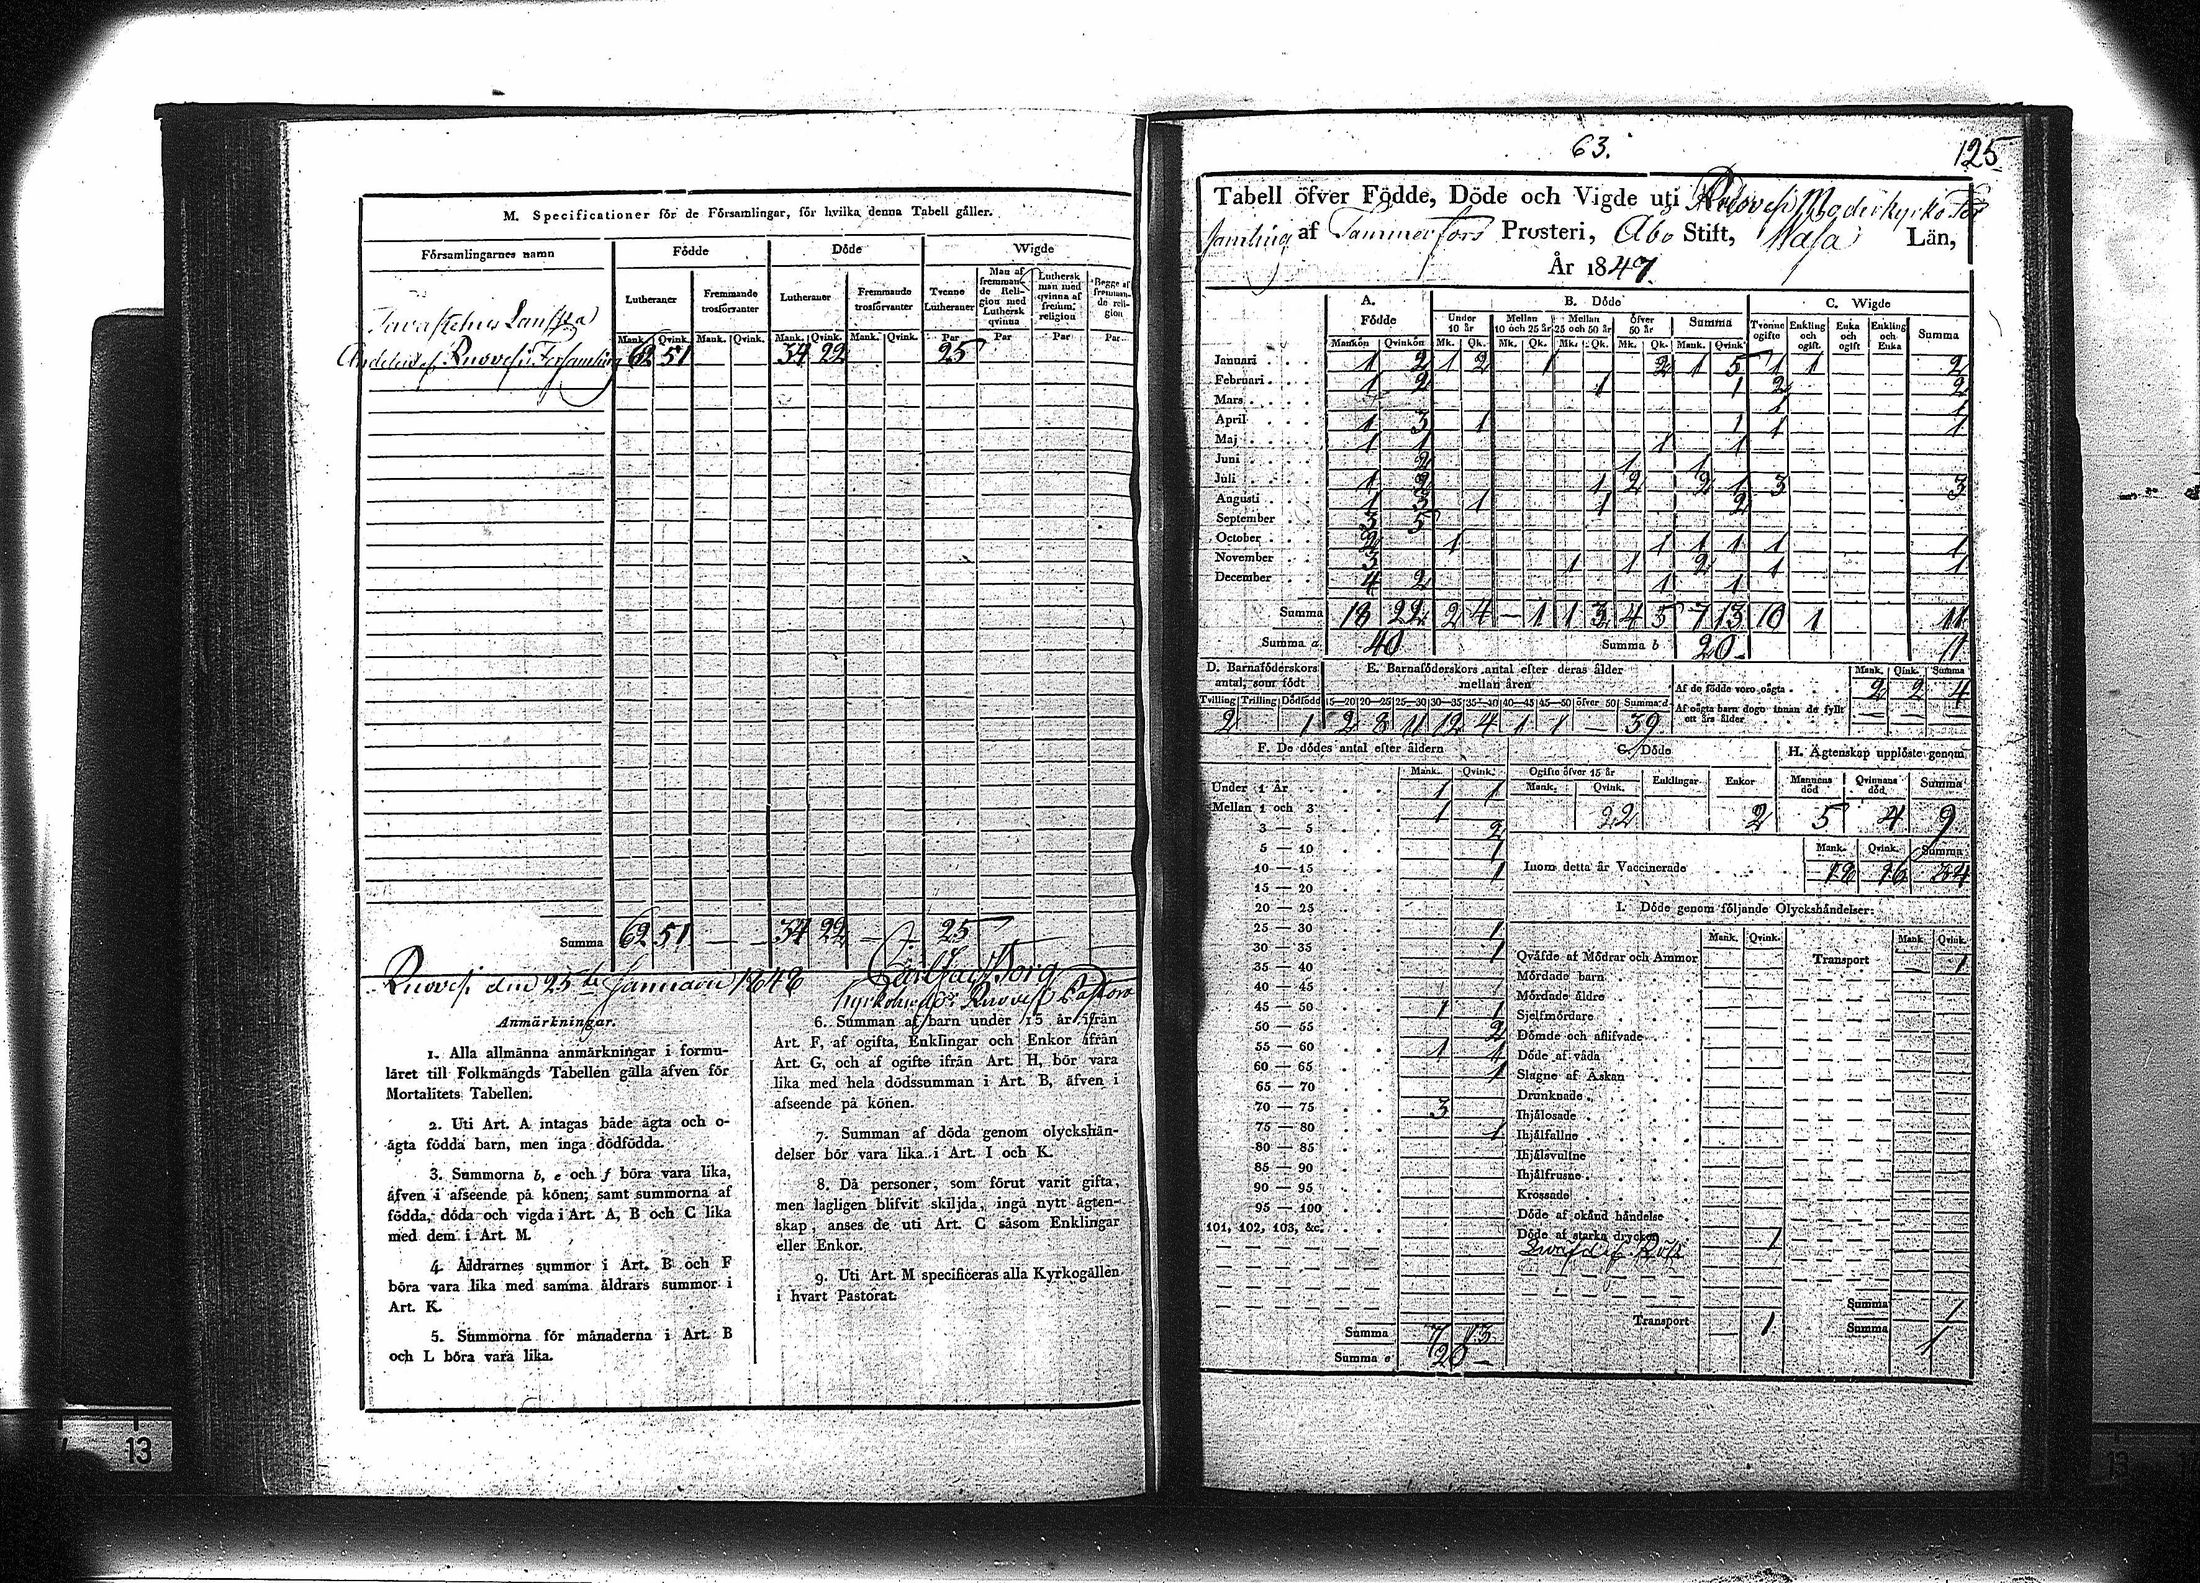 M. Specificationer för de Församlingar, för hvilka denna Tabell gäller.
Församlingarnes namn Födde Döde Wigde
Lutheraner Fremmande trosförvanter Lutheraner Fremmande trosförvanter Tvenne Lutheraner Man af fremmande Religion med Luthersk qvinna Luthersk man med qvinna af fremm. religion Begge af fremmande religion
Mank. Qvink. Mank. Qvink. Mank. Qvink. Mank. Qvink. Par Par Par Par
Tavastehus
Andelen af Ruovesi Församling 62 51 34 22 25
Summa 62 51 — — 34 22 — 25
Ruovesi den 25te Januarii 1848 Borg
Kyrkoherde Ruovesi Pastorat
Anmärkningar.
1. Alla allmänna anmärkningar i formu-
läret till Folkmängds Tabellen gälla äfven för
Mortalitets Tabellen.
2. Uti Art. A intagas både ägta och o-
ägta födda barn, men inga dödfödda.
3. Summorna b, e och f böra vara lika,
äfven i afseende på könen; samt summorna af
födda, döda och vigda i Art. A, B och C lika
med dem i Art. M.
4. Åldrarnes summor i Art. B och F
böra vara lika med samma åldrars summor i
Art. K.
5. Summorna för månaderna i Art. B
och L böra vara lika.
6. Summan af barn under 15 år ifrån
Art. F, af ogifta, Enklingar och Enkor ifrån
Art. G, och af ogifte ifrån Art. H, bör vara
lika med hela dödssumman i Art. B, äfven i
afseende på könen.
7. Summan af döda genom olyckshän-
delser bör vara lika i Art. I och K.
8. Då personer, som förut varit gifta,
men lagligen blifvit skiljda, ingå nytt ägten-
skap, anses de uti Art. C såsom Enklingar
eller Enkor.
9. Uti Art. M specificeras alla Kyrkogällen
i hvart Pastorat.
63. 125
Tabell öfver Födde, Döde och Vigde uti Ruovesi Moderkyrko För
samling af Tammerfors Prosteri, Åbo Stift, Wasa Län,
År 1847.
A. Födde B. Döde C. Wigde
Under 10 år Mellan 10 och 25 år Mellan 25 och 50 år Öfver 50 år Summa Tvenne ogifte Enkling och ogift Enka och ogift Enkling och Enka Summa
Mankön Qvinkön Mk. Qk. Mk. Qk. Mk. Qk. Mk. Qk. Mank. Qvink.
Januari 1 2 1 2 1 2 1 5 1 1 2
Februari 1 2 1 1 2 2
Mars 1 1
April 1 3 1 1 1 1
Maj 1 1 1 1
Juni 2 1 1
Juli 1 2 1 2 2 1 3 3
Augusti 1 3 1 1 2
September 3 5
October 2 1 1 1 1 1 1
November 3 1 1 2 1 1
December 4 2 1 1
Summa 18 22 2 4 — 1 1 3 4 5 7 13 10 1 11
Summa a 40 Summa b 20 11
D. Barnaföderskors antal, som födt E. Barnaföderskors antal efter deras ålder mellan åren Mank. Qink. Summa
Af de födde voro oägta 2 2 4
Af oägta barn dogo innan de fyllt ett års ålder — — —
Tvilling Trilling Dödfödd 15—20 20—25 25—30 30—35 35—40 40—45 45—50 öfver 50 Summa d
2 1 2 8 11 12 4 1 1 — 39
F. De dödes antal efter åldern G. Döde H. Ägtenskap upplöste genom
Mank. Qvink. Ogifte öfver 15 år Enklingar Enkor Mannens död Qvinnans död Summa
Mank. Qvink.
22 2 5 4 9
Under 1 År 1 1
Mellan 1 och 3 1
3 — 5 2
5 — 10 1
10 — 15 1
15 — 20
20 — 25
25 — 30 1
30 — 35 1
35 — 40
40 — 45
45 — 50 1 1
50 — 55 2
55 — 60 1 1
60 — 65 1
65 — 70
70 — 75 3
75 — 80 1
80 — 85
85 — 90
90 — 95
95 — 100
101, 102, 103, &c.
Summa 7 13
Summa e 20
Mank. Qvink. Summa
Inom detta år Vaccinerade 18 16 34
I. Döde genom följande Olyckshändelser:
Mank. Qvink. Mank. Qvink.
Qväfde af Mödrar och Ammor Transport — 1
Mördade barn
Mördade äldre
Sjelfmördare
Dömde och aflifvade
Döde af våda
Slagne af Åskan
Drunknade
Ihjälosade
Ihjälfallne
Ihjälsvultne
Ihjälfrusne
Krossade
Döde af okänd händelse
Döde af starka drycker
Qväfd af Rök 1
Summa 1
Transport — 1 Summa 1
13